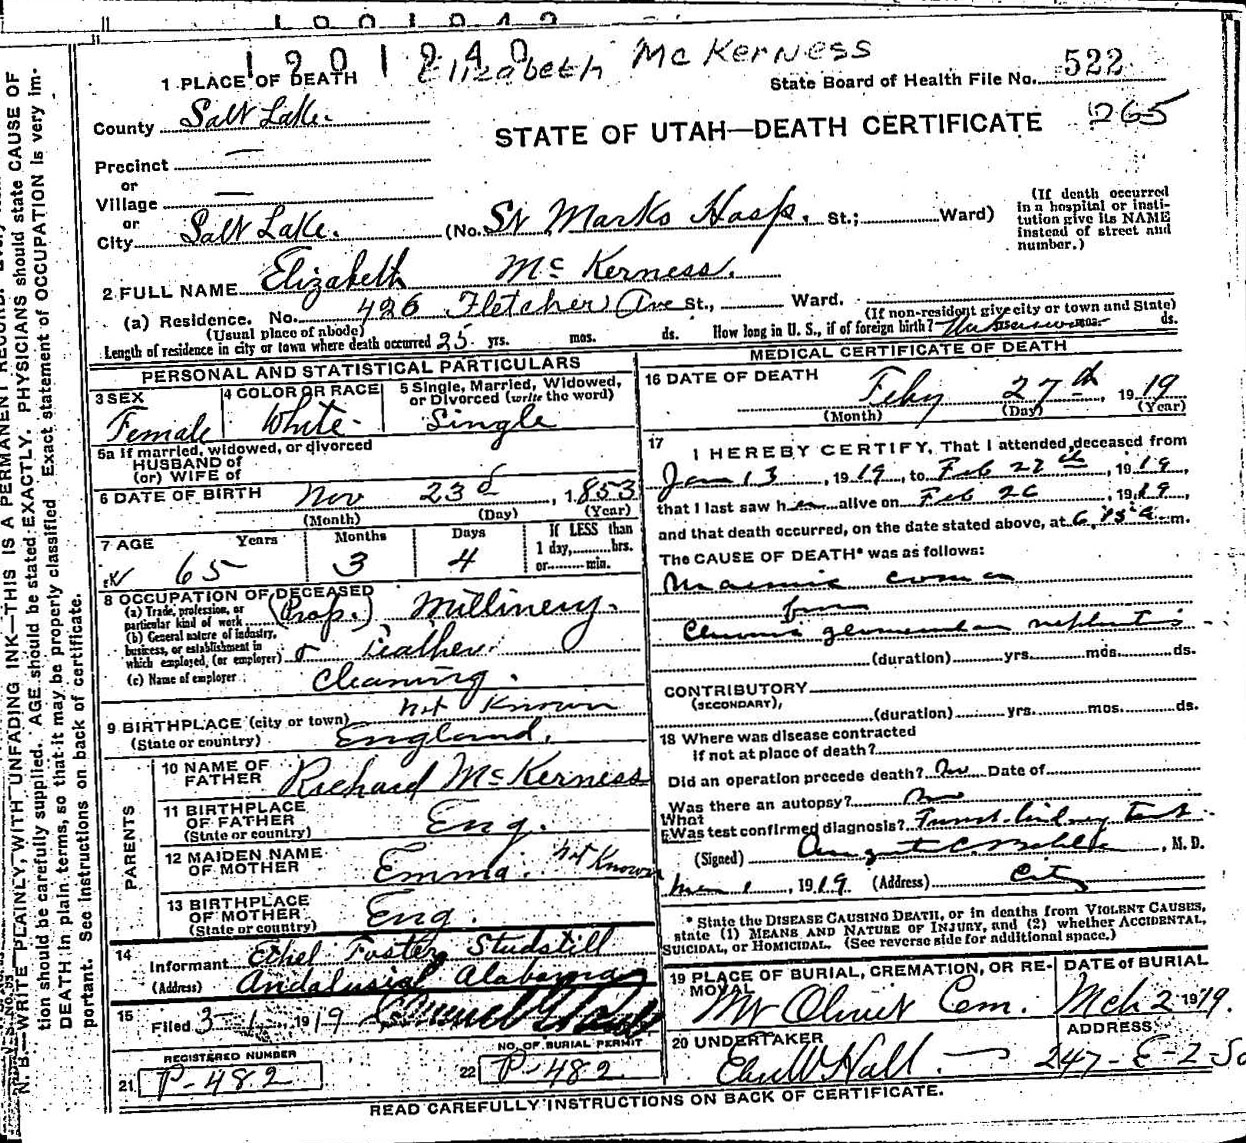 1201240
Elizabeth McKerness
1 PLACE OF DEATH
State Board of Health File No. 522
County Salt Lake.
STATE OF UTAH—DEATH CERTIFICATE 265
Precinct —
or
Village —
or
City Salt Lake. (No. St Marks Hosp. St.; Ward)
(If death occurred in a hospital or institution give its NAME instead of street and number.)
2 FULL NAME Elizabeth McKerness.
(a) Residence. No. 426 Fletcher Ave St., Ward.
(Usual place of abode) (If non-resident give city or town and State)
Length of residence in city or town where death occurred 25 yrs. mos. ds. How long in U. S., if of foreign birth? mos. ds.
PERSONAL AND STATISTICAL PARTICULARS
3 SEX Female
4 COLOR OR RACE White
5 Single, Married, Widowed, or Divorced (write the word) Single
5a If married, widowed, or divorced
HUSBAND of
(or) WIFE of
6 DATE OF BIRTH Nov 23d, 1853
(Month) (Day) (Year)
7 AGE Years Months Days If LESS than
65 3 4 1 day, hrs.
or min.
8 OCCUPATION OF DECEASED
(a) Trade, profession, or particular kind of work (Prop.) Millinery.
(b) General nature of industry, business, or establishment in which employed, (or employer) & Feather
(c) Name of employer Cleaning.
9 BIRTHPLACE (city or town) not Known
(State or country) England.
PARENTS
10 NAME OF FATHER Richard McKerness
11 BIRTHPLACE OF FATHER (State or country) Eng.
12 MAIDEN NAME OF MOTHER Emma. not Known
13 BIRTHPLACE OF MOTHER (State or country) Eng.
14 Informant Ethel Foster Studstill
(Address) Andalusia Alabama
15 Filed 3-1, 1919
REGISTERED NUMBER
21 P-482
NO. OF BURIAL PERMIT
22 P-482
MEDICAL CERTIFICATE OF DEATH
16 DATE OF DEATH Feby 27th, 1919
(Month) (Day) (Year)
17 I HEREBY CERTIFY, That I attended deceased from
Jan 13, 1919, to Feb 27th, 1919,
that I last saw her alive on Feb 26, 1919,
and that death occurred, on the date stated above, at 6 15 a m.
The CAUSE OF DEATH* was as follows:
coma
from
Chronic glomerular nephritis
(duration) yrs. mos. ds.
CONTRIBUTORY
(SECONDARY),
(duration) yrs. mos. ds.
18 Where was disease contracted
if not at place of death?
Did an operation precede death? No Date of
Was there an autopsy? No
What test confirmed diagnosis? Funct. kidney test
(Signed) August C. , M. D.
1, 1919 (Address) City
* State the DISEASE CAUSING DEATH, or in deaths from VIOLENT CAUSES,
state (1) MEANS AND NATURE OF INJURY, and (2) whether ACCIDENTAL,
SUICIDAL, or HOMICIDAL. (See reverse side for additional space.)
19 PLACE OF BURIAL, CREMATION, OR REMOVAL Mt Olivet Cem.
DATE of BURIAL Mch 2 1919.
20 UNDERTAKER Eber W Hall.
ADDRESS 247-E-2 So
READ CAREFULLY INSTRUCTIONS ON BACK OF CERTIFICATE.
N. B.—WRITE PLAINLY, WITH UNFADING INK—THIS IS A PERMANENT RECORD.
tion should be carefully supplied. AGE should be stated EXACTLY. PHYSICIANS should state CAUSE OF
DEATH in plain terms, so that it may be properly classified. Exact statement of OCCUPATION is very im-
portant. See instructions on back of certificate.